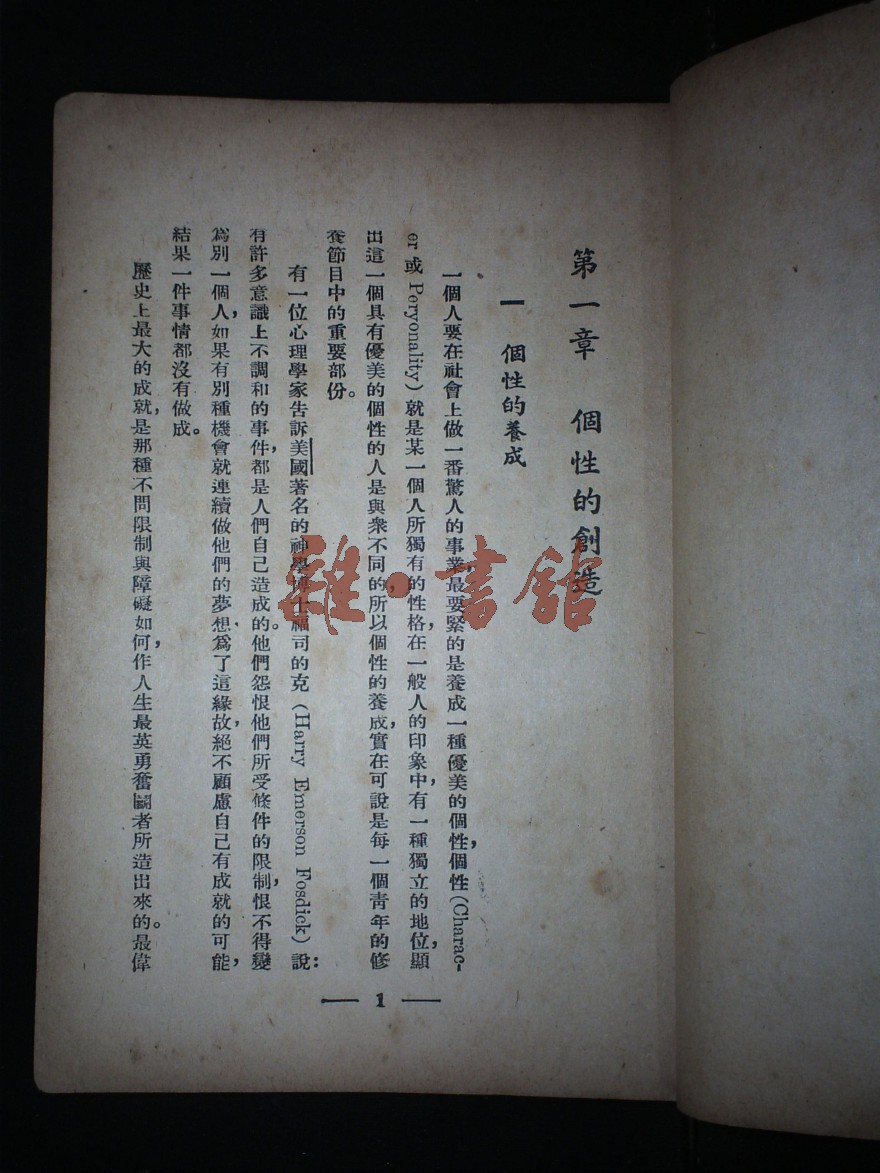 第一章　個性的創造
一　個性的養成
一個人要在社會上做一番驚人的事業，最要緊的是養成一種優美的個性，個性（Charac-
er 或 Peryonality）就是某一個人所獨有的性格，在一般人的印象中，有一種獨立的地位，顯
出這一個具有優美的個性的人是與衆不同的，所以個性的養成，實在可說是每一個靑年的修
養節目中的重要部份。
有一位心理學家告訴美國著名的神學博士福司的克（Harry Emerson Fosdick）說：
有許多意識上不調和的事件，都是人們自己造成的。他們怨恨他們所受條件的限制，恨不得變
爲別一個人，如果有別種機會就連續做他們的夢想，爲了這緣故，絕不顧慮自己有成就的可能，
結果一件事情都沒有做成。
歷史上最大的成就，是那種不問限制與障礙如何，作人生最英勇奮鬭者所造出來的。最偉
1
雜·書館